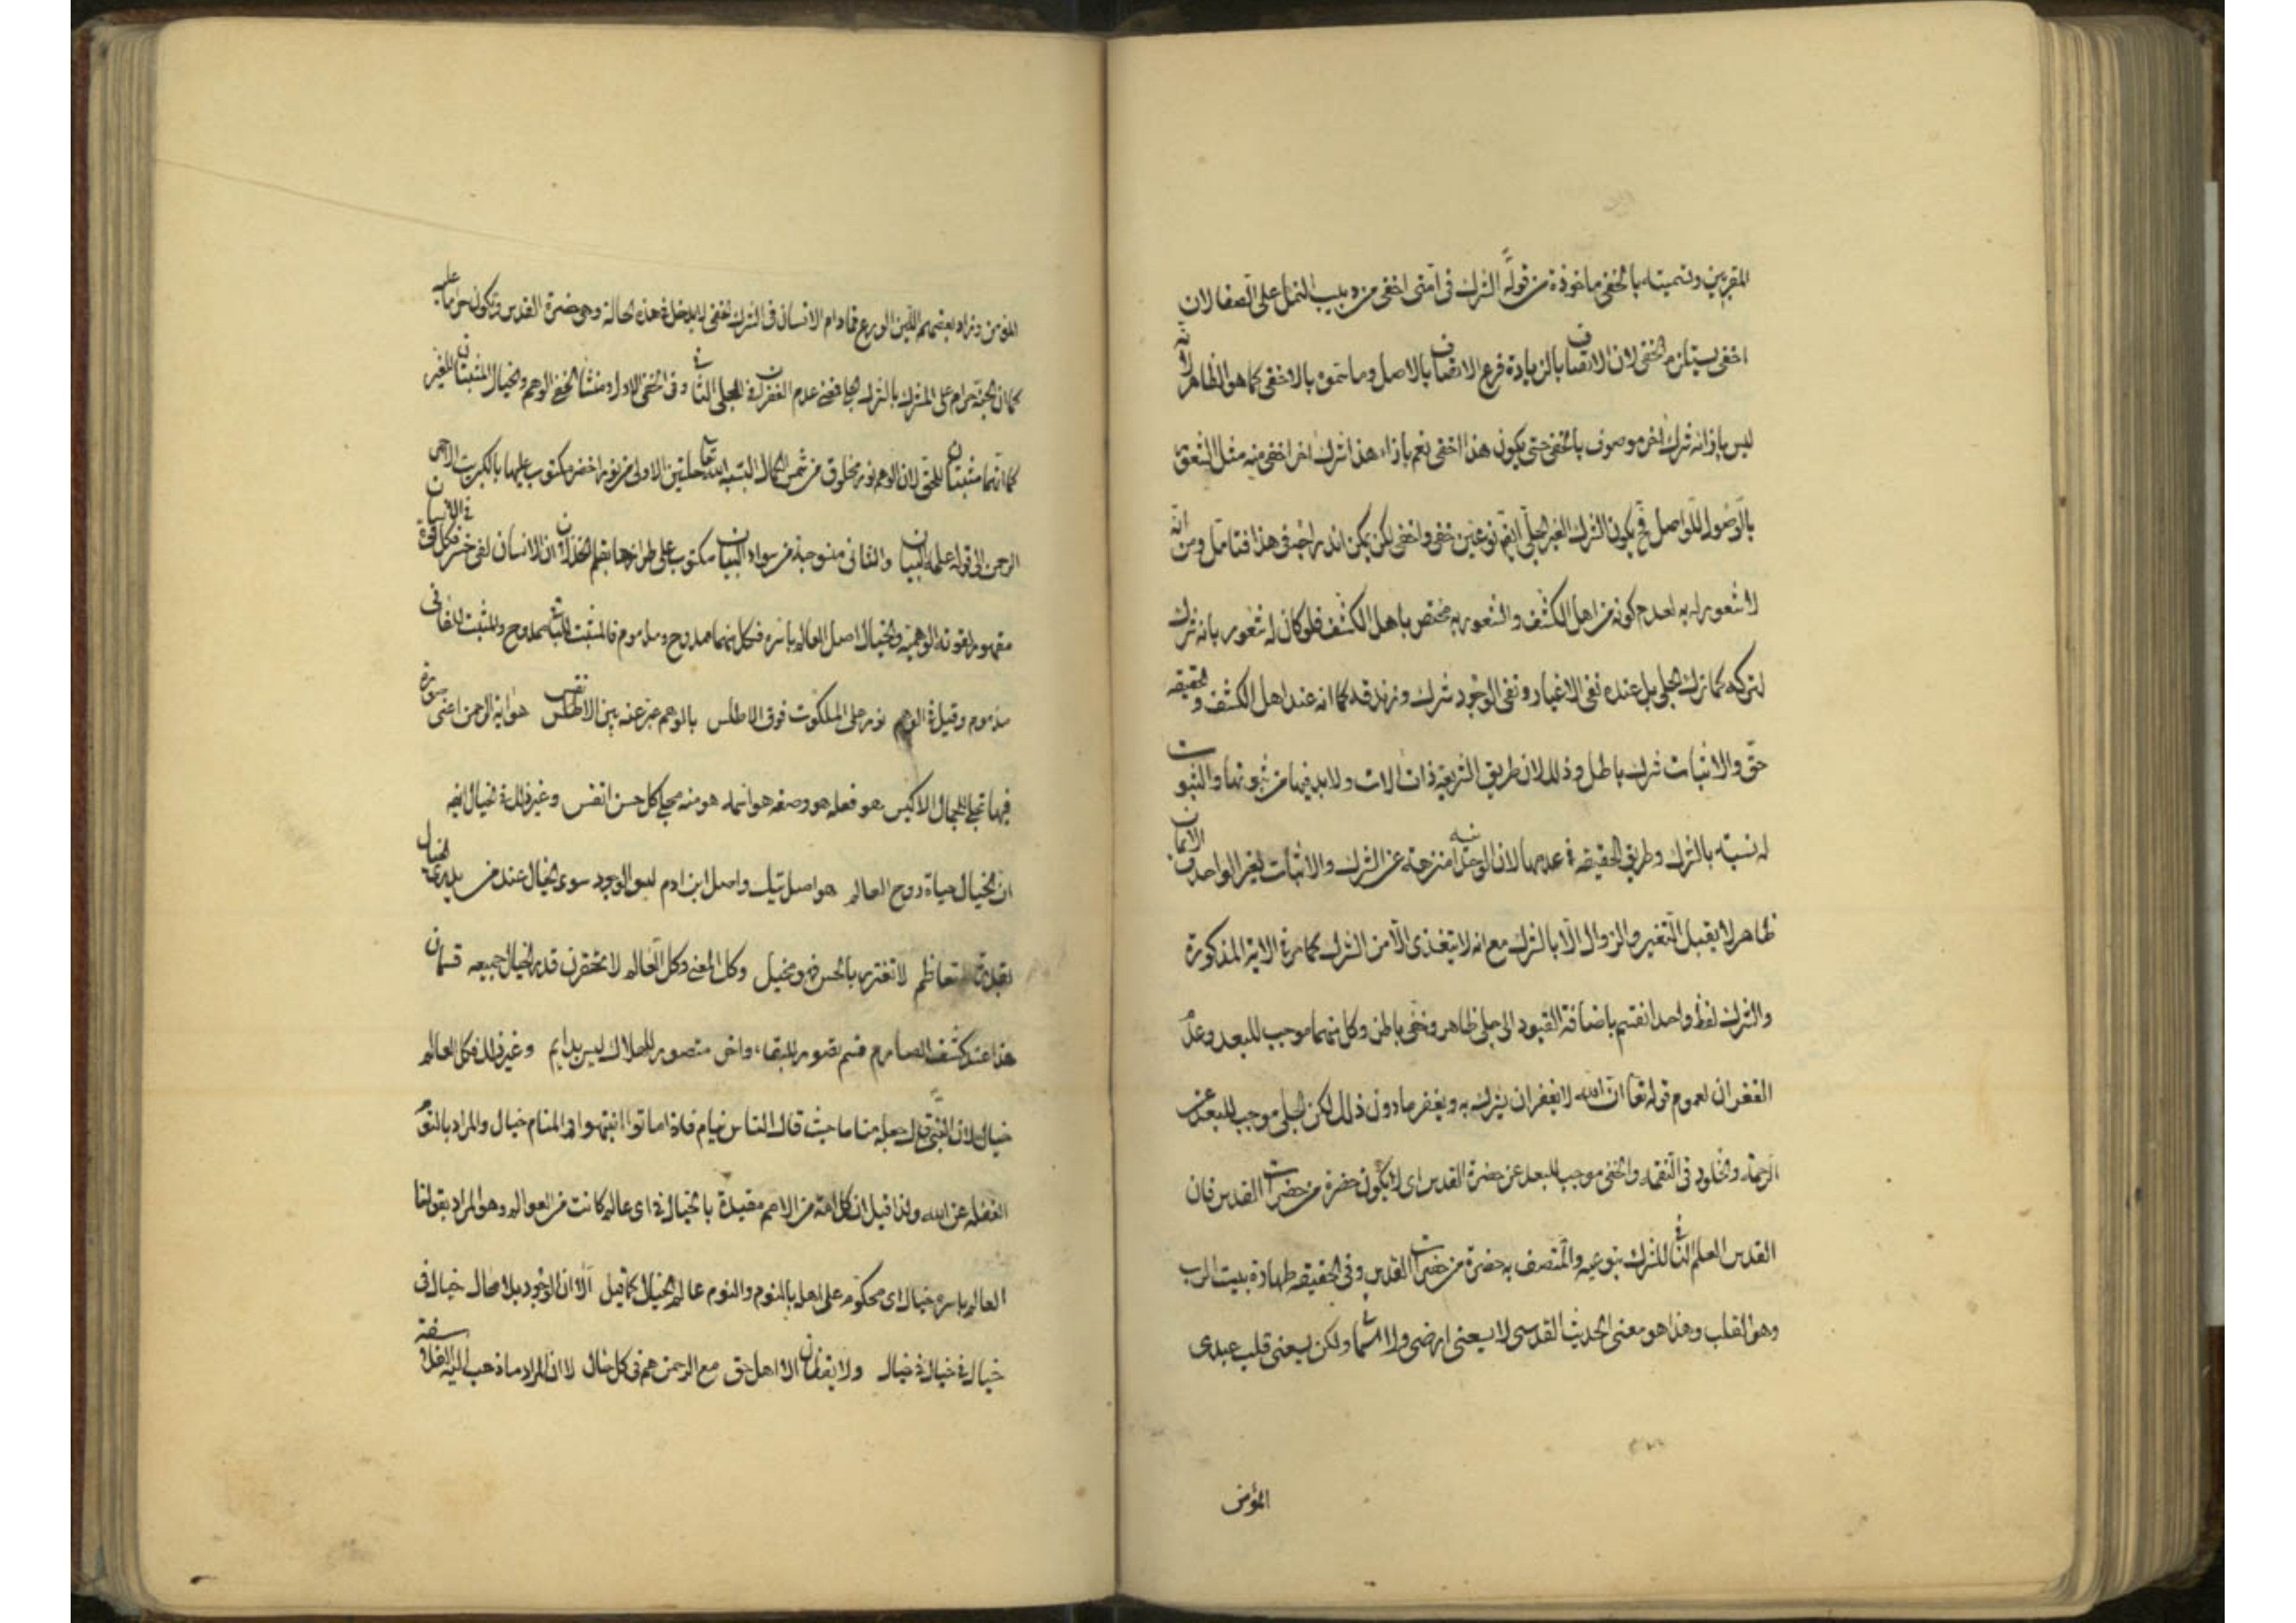 المقربين وتسميته بالخفي ماخوذة من قوله الشرك في امتى اخفى من دبيب النمل على الصفا لان
اخفى يستلزم الخفى لان الاتصاف بالزيادة فرع الاتصاف بالاصل وما سموه بالاخفى كما هو الظاهر لانه
ليس بازائه شرك اخر موصوف بالخفى حتى يكون هذا اخفى نعم بازاء هذا شرك اخر اخفى منه مثل التعلق
بالوصول للواصل فح يكون الشرك الغير الجلى ايضا نوعين خفى واخفى لكن يمكن اندراجه في هذا فتامل ومن انه
لا شعور له به لعدم كونه من اهل الكشف والشعور به مختص باهل الكشف فلو كان له شعور بانه شرك
لتركه كما ترك الجلى بل عنده نفى الاغيار ونفى الوجود شرك وزندقة كما انه عند اهل الكشف والحقيقه
حق والاثبات شرك باطل وذلك لان طريق الشريعة ذات الات ولا بد فيها من ثبوتها والثبوت
له نسبته بالشرك وطريق الحقيقه في عدمها لان الوحدانيه منزهة عن الشرك والاثبات لغير الواحد فالايمان
ظاهر لا يقبل التغير والزوال الا بالشرك مع انه لا يتغذى الا من الشرك كما مر في الاية المذكورة
والشرك لفظ واحد انقسم باضافة القيود الى جلى ظاهر وخفى باطن وكل منهما موجب للبعد وعدم
الغفران لعموم قوله تعا ان الله لا يغفر ان يشرك به ويغفر ما دون ذلك لكن الجلى موجب للبعد عن
الرحمة والخلود في النقمة والخفى موجب للبعد عن حضرة القدس اى لا يكون حضرة من حضرات القدس فان
القدس العلم الثانى للشرك بنوعيه والمتصف به حضرة من حضرات القدس وفى الحقيقه طهارة بيت الرب
وهو القلب وهذا هو معنى الحديث القدسى لا يسعنى ارضى ولا سمائى ولكن يسعنى قلب عبدى
المؤمن
المؤمن وزاد بعضهم اللين الورع فمادام الانسان في الشرك الخفى لا يدخل في هذه الحالة وهى حضرة القدس وتكون حراما عليه
كما ان الجنة حرام على المشرك بالشرك الجلى فمعنى عدم الغفران في الجلى الثانى وفى الخفى الاول ومنشأ الخفى الوهم والخيال المثبتان للغير
كما انهما مثبتان للحق لان الوهم نور مخلوق من شمس الكمال البسه الله تعا حلتين الاولى من نور اخضر مكتوب عليها بالكبريت الاحمر
الرحمن الى قوله علمه البيان والثانى منسوجة من سواد البيان مكتوب على طرازها بقلم الخذلان ان الانسان لفى خسر فكل قوة في الانسان
مقهورة لقوته الوهمية والخيال اصل العالم باسره فكل منهما ممدوح ومذموم فالمثبت للباقى ممدوح والمثبت للفانى
مذموم وقيل في الوهم نور على الملكوت فوق الاطلس بالوهم عبر عنه بين الانفس هو اية الرحمن اعنى صورة
فيها تجلى للجمال الاكيس هو فعله هو وصفه هو اسمه هو منه مجلى كل حسن انفس وغير ذلك في الخيال ايضا
ان الخيال حياة روح العالم هو اصل تيك واصل ابن ادم ليس الوجود سوى الخيال عند من يدرى الخيال
بقدرة المتعاظم لا تغتر بالحس فهو مخيل وكل المعنى وكل العالم لا تحقرن قدر الخيال جميعه قسمان
هذا عند كشف الصارم قسم تصور للبقاء واخر متصور للهلاك ليس بدايم وغير ذلك فكل العالم
خيال لان النبي جعله مناما حيث قال الناس نيام فاذا ماتوا انتبهوا والمنام خيال والمراد بالنوم
الغفلة عن الله ولذا قيل ان كل امة من الامم مقيدة بالخيال في اى عالم كانت من العوالم وهو المراد بقولنا
العالم باسره خيال اى محكوم على اهله بالنوم والنوم عالم الخيال كما قيل الا ان الوجود بلا محال خيال في
خيال في خيال في خيال ولا يقظان الا اهل حق مع الرحمن هم في كل حال لا ان المراد ما ذهب اليه الفلاسفة